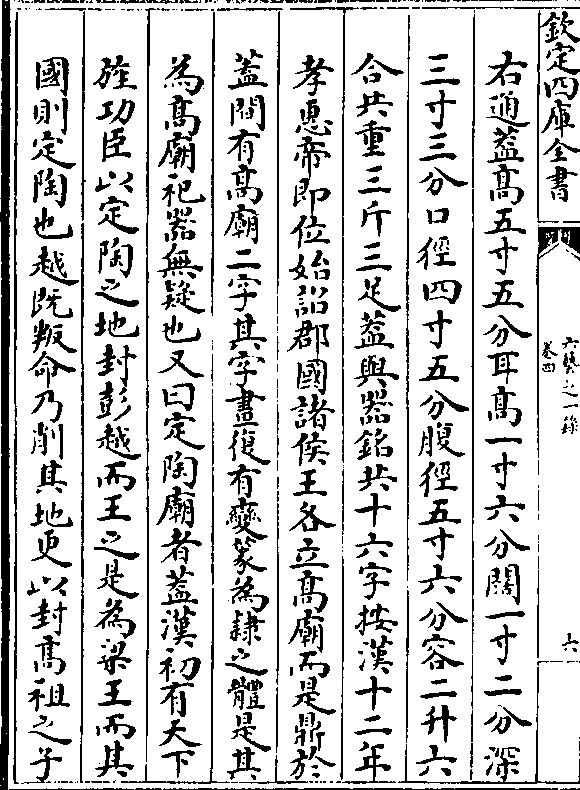 欽定四庫全書
六藝之一錄
卷四
六
右通葢髙五寸五分耳髙一寸六分闊一寸二分深
三寸三分口徑四寸五分腹徑五寸六分容二升六
合共重三斤三足葢與器銘共十六字按漢十二年
孝惠帝即位始詔郡國諸侯王各立髙廟而是鼎於
葢間有髙廟二字其字畫復有變篆為隸之體是其
為髙廟祀器無疑也又曰定陶廟者葢漢初有天下
旌功臣以定陶之地封彭越而王之是為梁王而其
國則定陶也越既叛命乃削其地更以封髙祖之子